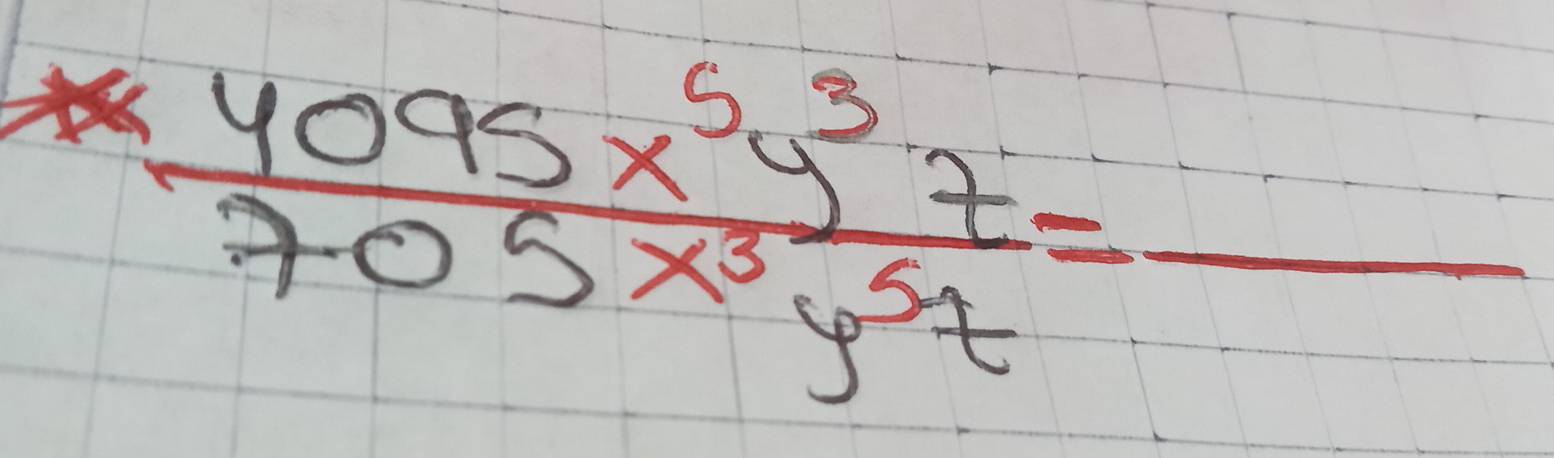 4095 x⁵ y³ z =
705 x³ y⁵ z